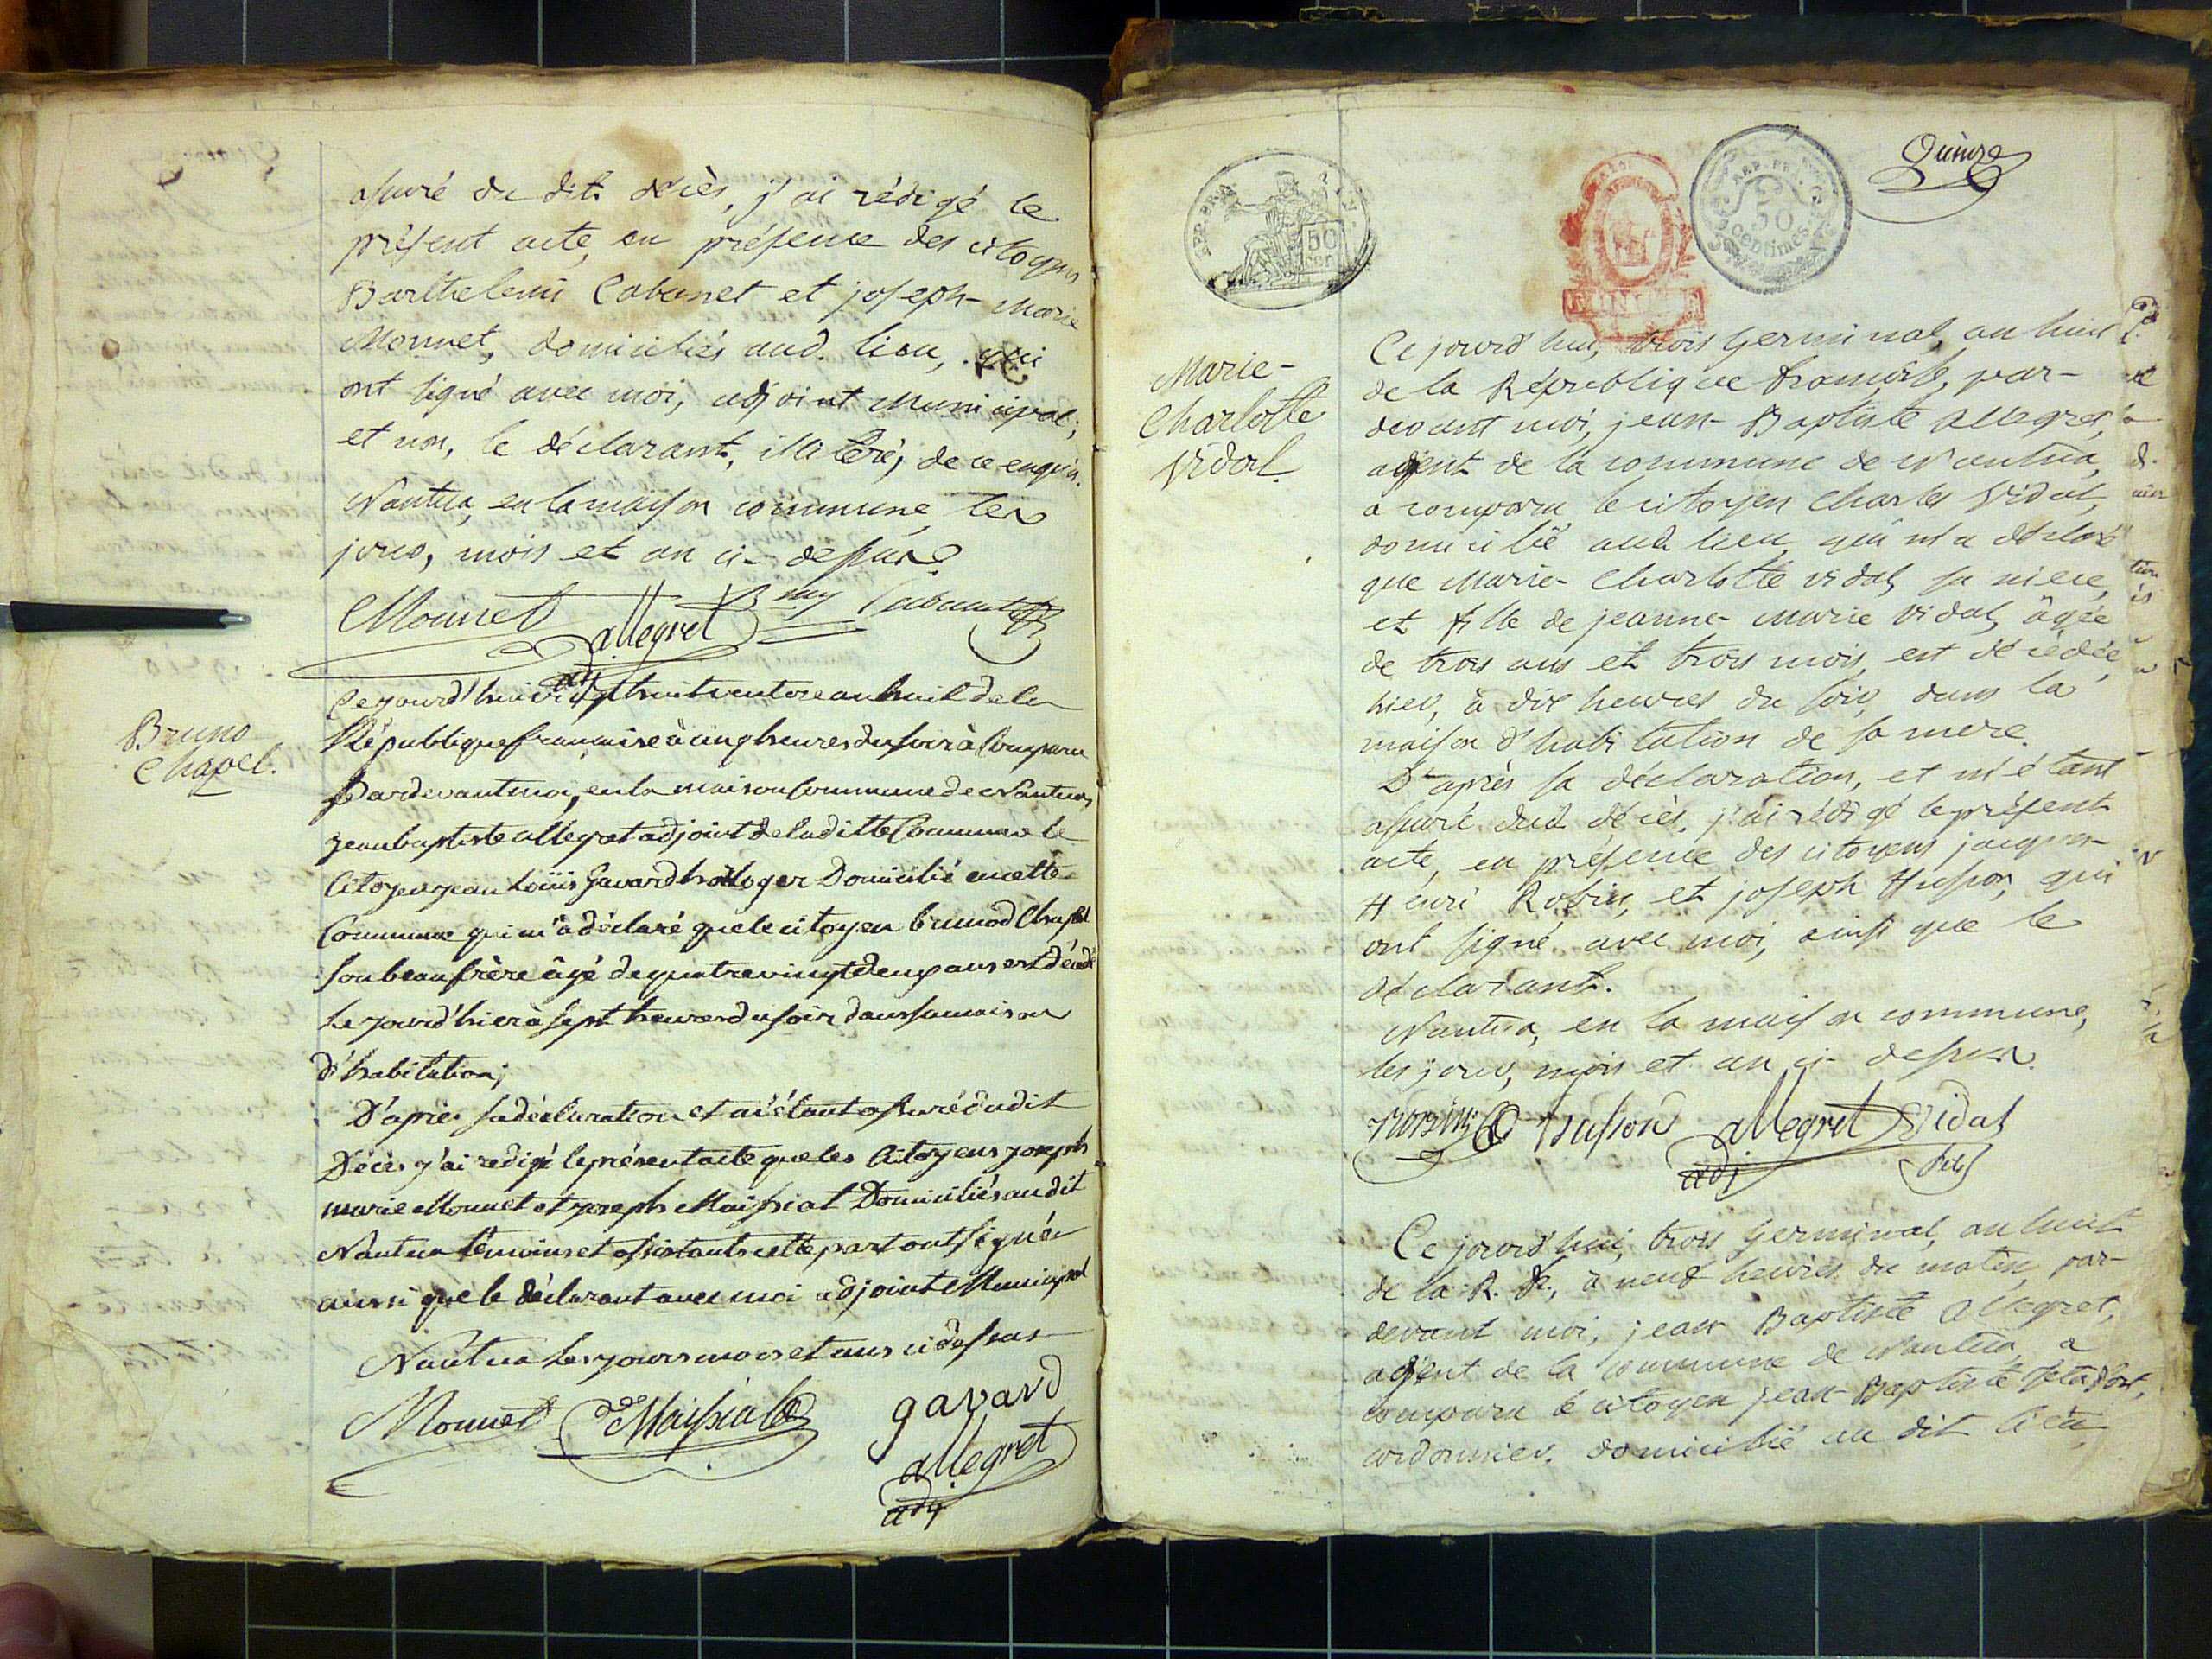 assuré du dit décès, j'ai rédigé le
présent acte, en présence des citoyens
Barthelemi Cabanet et joseph-Marie
Monnet, domiciliés aud. lieu, qui
ont signé avec moi, adjoint municipal;
et non, le déclarant, illiteré, de ce enquis.
Nantua, en la maison commune, les
jour, mois et an ci-dessus.
Monnet allegret Bmy Cabanet
adj
Bruno
Chapel.
Ce jourd'hui vingt huit ventose an huit de la
République française à cinq heures du soir à Comparu
Pardevant moi, en la maison Commune de Nantua,
jean baptiste allegret adjoint de laditte Commune le
Citoyen jean Loüis Gavard horloger Domicilié en cette
Commune qui m'a déclaré que le citoyen brunod Chapel
son beau frère âgé de quatre vingt deux ans est décédé
Le jourd'hier à sept heures du soir dans sa maison
d'habitation;
D'après sa déclaration et m'étant assuré dudit
Décès j'ai redigé le présent acte que les Citoyens joseph
marie Monnet et joseph Maissiat Domiciliés audit
Nantua témoins et assistants cette part ont signé
aussi que le déclarant avec moi adjoint Municipal
Nantua les jours mois et ans ci dessus
Monnet Maissiat gavard
allegret
adj
Quinze
REP. FRA.
50
cen
REP. FRA.
50
Centimes
Marie-
Charlotte
Vidal.
Ce jourd'hui, trois Germinal, an huit
de la République française, par-
devant moi, jean-Baptiste allegret,
agent de la commune de Nantua,
a comparu le citoyen Charles Vidal,
domicilié aud. lieu, qui m'a déclaré
que Marie-Charlotte vidal, sa niece,
et fille de jeanne-marie vidal, âgée
de trois ans et trois mois, est décédée,
hier, à dix heures du soir, dans la
maison d'habitation de sa mere.
D'après sa déclaration, et m'étant
assuré dud. décès, j'ai rédigé le présent
acte, en présence des citoyens jacques-
Henri Robin, et joseph Husson, qui
ont signé avec moi, ainsi que le
déclarant.
Nantua, en la maison commune,
les jour, mois et an ci-dessus.
Robin husson allegret Vidal
adj fils
Ce jourd'hui, trois Germinal, an huit
de la R. Fr., à neuf heures du matin, par-
devant moi, jean Baptiste allegret,
agent de la commune de Nantua, a
comparu le citoyen jean-Baptiste
cordonnier, domicilié au dit lieu,